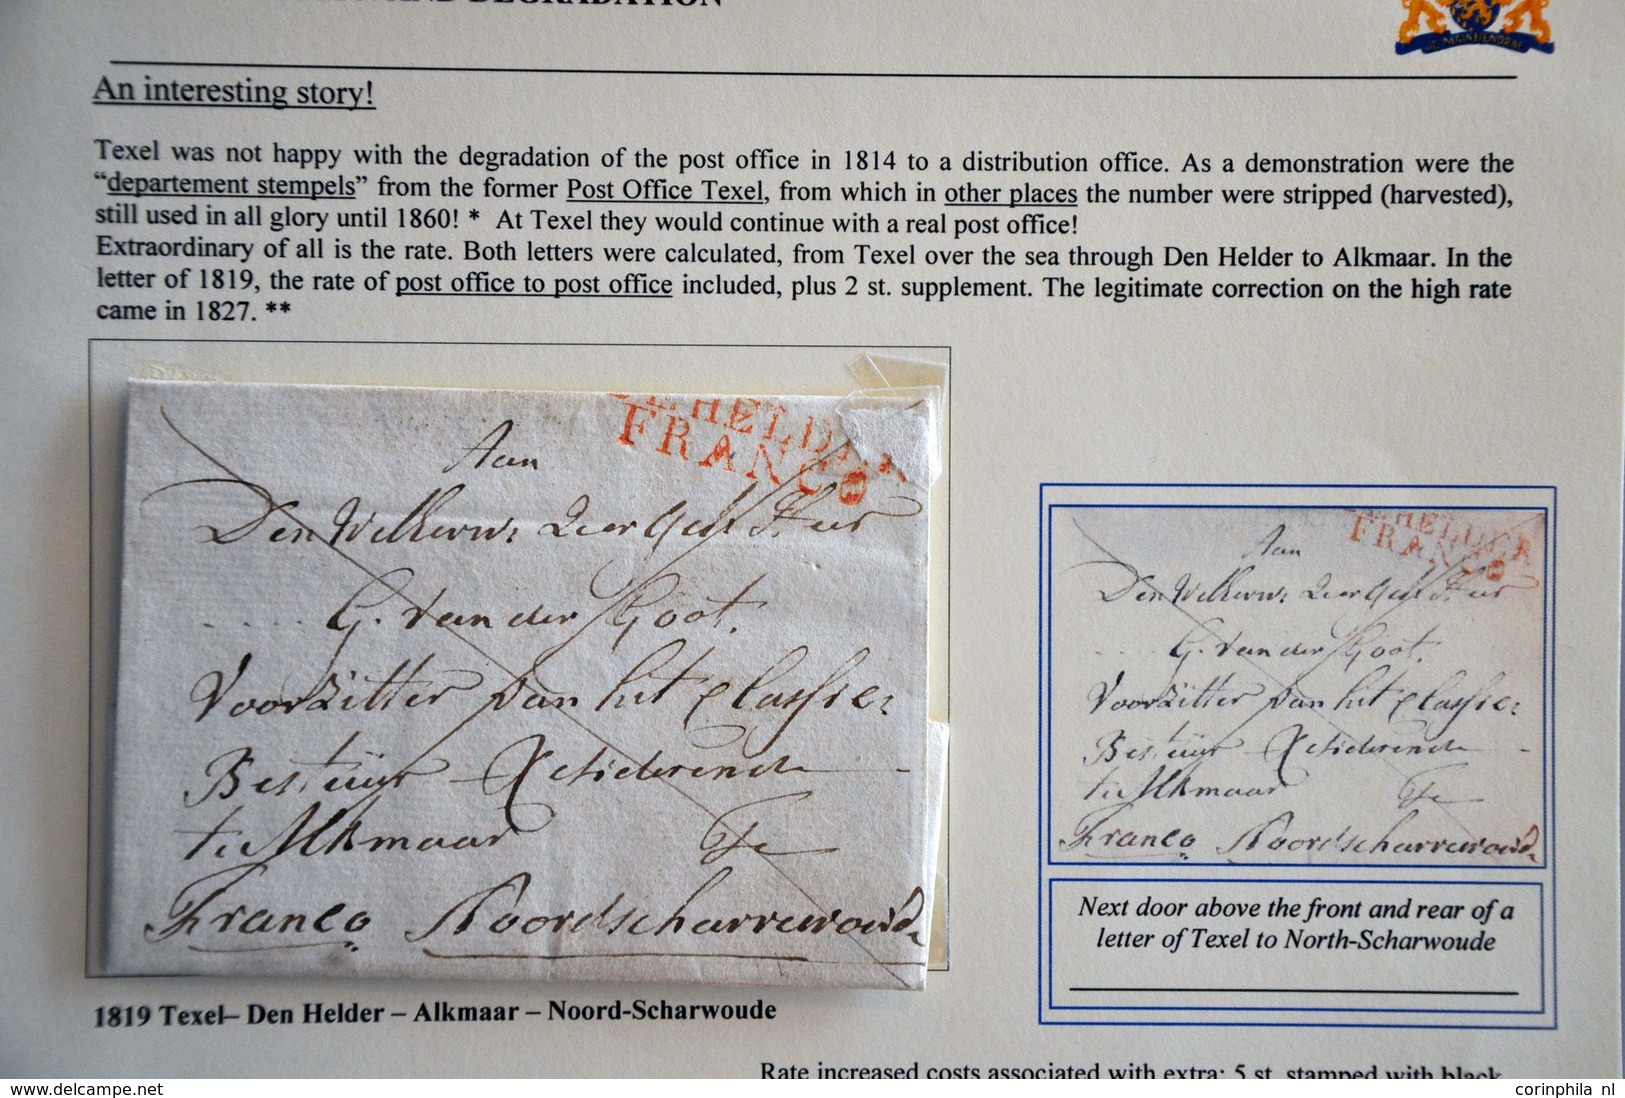 AND DEGRADATION
JE MAINTIENDRAI
An interesting story!
Texel was not happy with the degradation of the post office in 1814 to a distribution office. As a demonstration were the
“departement stempels” from the former Post Office Texel, from which in other places the number were stripped (harvested),
still used in all glory until 1860! * At Texel they would continue with a real post office!
Extraordinary of all is the rate. Both letters were calculated, from Texel over the sea through Den Helder to Alkmaar. In the
letter of 1819, the rate of post office to post office included, plus 2 st. supplement. The legitimate correction on the high rate
came in 1827. **
HELDER
FRANCO
Aan
Den Heer
G. van der Goot.
Voorzitter van het
Bestuur
te Alkmaar Te
Franco Noordscharrewoude
1819 Texel– Den Helder – Alkmaar – Noord-Scharwoude
HELDER
FRANCO
Aan
Den Heer
G. van der Goot.
Voorzitter van het
Bestuur
te Alkmaar Te
Franco Noordscharrewoude
Next door above the front and rear of a
letter of Texel to North-Scharwoude
Rate increased costs associated with extra: 5 st. stamped with black
www.delcampe.net
corinphila nl